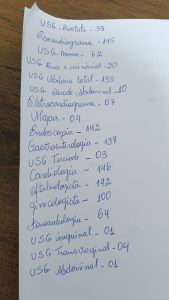 USG - Próstata - 35
Ecocardiograma - 145
USG - mama - 62
USG Rins e vias urinárias - 20
USG Abdome total - 135
USG Parede Abdominal - 10
Eletrocardiograma - 07
Utapa - 04
Endoscopia - 142
Gastroenterologia - 138
USG Tireoide - 03
Cardiologia - 146
oftalmologista - 192
ginecologista - 100
Fonoaudiologia - 64
USG inguinal - 01
USG Transvaginal - 04
USG Abdominal - 01